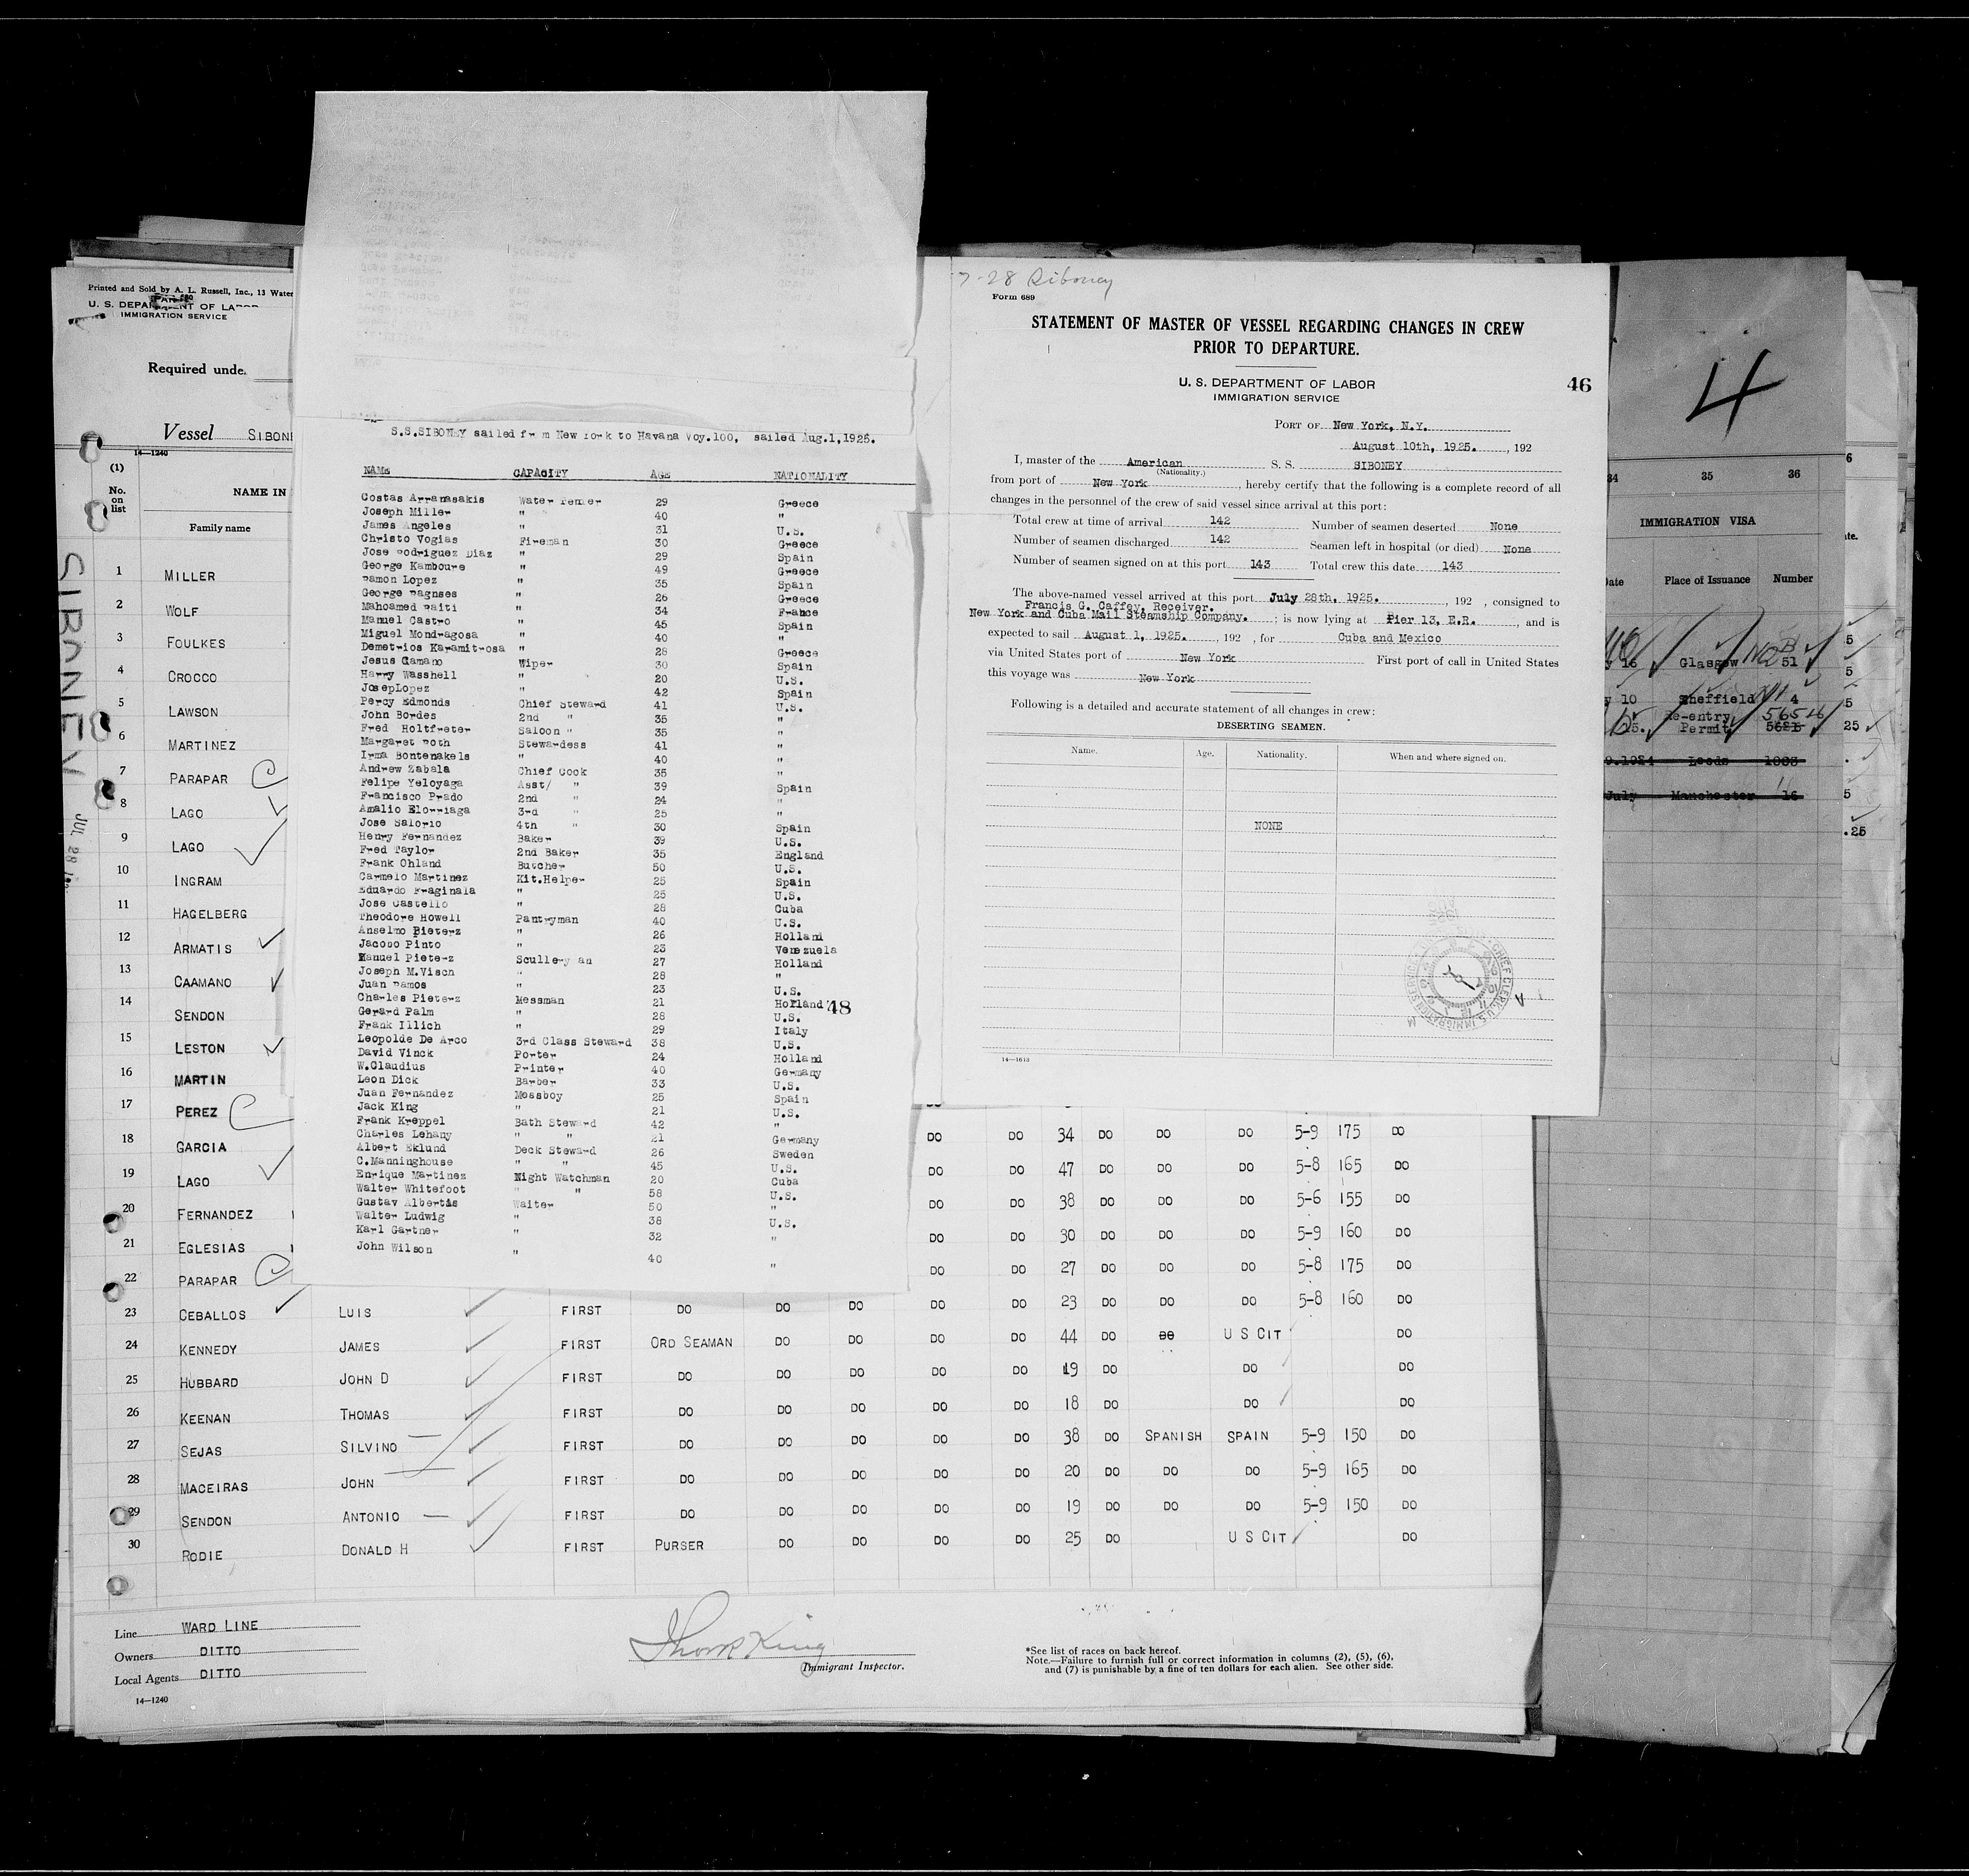 Printed and Sold by A. L. Russell, Inc., 13 Water
U. S. DEPARTMENT OF LABOR
IMMIGRATION SERVICE
Required unde
Vessel SIBON
14—1240
(1)
No. on list
NAME IN
Family name
SIBONEY JUL 28
1 MILLER
2 WOLF
3 FOULKES
4 CROCCO
5 LAWSON
6 MARTINEZ
7 PARAPAR
8 LAGO
9 LAGO
10 INGRAM
11 HAGELBERG
12 ARMATIS
13 CAAMANO
14 SENDON
15 LESTON
16 MARTIN
17 PEREZ
18 GARCIA
19 LAGO
20 FERNANDEZ
21 EGLESIAS
22 PARAPAR
S.S.SIBONEY sailed from New York to Havana Voy.100, sailed Aug.1,1925.
NAME CAPACITY AGE NATIONALITY
Costas Arranasakis Water Tender 29 Greece
Joseph Miller " 40 "
James Angeles " 31 U.S.
Christo Vogias Fireman 30 Greece
Jose Rodriguez Diaz " 29 Spain
George Kamboure " 49 Greece
Ramon Lopez " 35 Spain
George Pagnses " 26 Greece
Mahoamed Raiti " 34 France
Manuel Castro " 45 Spain
Miguel Mondragosa " 40 "
Demetrios Karamitrosa " 28 Greece
Jesus Gamano Wiper 30 Spain
Harry Wasshell " 20 U.S.
JosepLopez " 42 Spain
Percy Edmonds Chief Steward 41 U.S.
John Bordes 2nd " 35 "
Fred Holtfreter Saloon " 35 "
Margaret Roth Stewardess 41 "
Irma Bontenakels " 40 "
Andrew Zabala Chief Cook 35 "
Felipe Yeloyaga Asst/ " 39 Spain
Francisco Prado 2nd " 24 "
Amalio Elorriaga 3rd " 25
Jose Salorio 4th " 30 Spain
Henry Fernandez Baker 39 U.S.
Fred Taylor 2nd Baker 35 England
Frank Ohland Butcher 50 U.S.
Carmelo Martinez Kit.Helper 25 Spain
Eduardo Fraginala " 25 U.S.
Jose Castello " 28 Cuba
Theodore Howell Pantryman 40 U.S.
Anselmo Pieterz " 26 Holland
Jacobo Pinto " 23 Venezuela
Manuel Pieterz Scullery an 27 Holland
Joseph M.Visch " 28 "
Juan Ramos " 23 U.S.
Charles Pieterz Messman 21 Holland
48
Gerard Palm " 28 U.S.
Frank Illich " 29 Italy
Leopolde De Arco 3rd Class Steward 38 U.S.
David Vinck Porter 24 Holland
W.Claudius Printer 40 Germany
Leon Dick Barber 33 U.S.
Juan Fernandez Messboy 25 Spain
Jack King " 21 U.S.
Frank Kreppel Bath Steward 42 "
Charles Lehany " " 21 Germany
Albert Eklund Deck Steward 26 Sweden
C.Manninghouse " " 45 U.S.
Enrique Martinez Night Watchman 20 Cuba
Walter Whitefoot " " 58 U.S.
Gustav Albertis Waiter 50 "
Walter Ludwig " 38 U.S.
Karl Gartner " 32 "
John Wilson " 40 "
7-28 Siboney
Form 689
STATEMENT OF MASTER OF VESSEL REGARDING CHANGES IN CREW
PRIOR TO DEPARTURE.
U. S. DEPARTMENT OF LABOR
46
IMMIGRATION SERVICE
PORT OF New York, N.Y.
August 10th, 1925. , 192
I, master of the American S. S. SIBONEY
(Nationality.)
from port of New York , hereby certify that the following is a complete record of all
changes in the personnel of the crew of said vessel since arrival at this port:
Total crew at time of arrival 142 Number of seamen deserted None
Number of seamen discharged 142 Seamen left in hospital (or died) None
Number of seamen signed on at this port 143 Total crew this date 143
The above-named vessel arrived at this port July 28th, 1925. , 192 , consigned to
Francis G. Caffey, Receiver.
New York and Cuba Mail Steamship Company. ; is now lying at Pier 13, E.R. , and is
expected to sail August 1, 1925. , 192 , for Cuba and Mexico
via United States port of New York First port of call in United States
this voyage was New York
Following is a detailed and accurate statement of all changes in crew:
DESERTING SEAMEN.
Name. Age. Nationality. When and where signed on.
NONE
CHIEF CLERK U.S. IMMIGRATION SERVICE
14—1613
4
34 35 36
IMMIGRATION VISA
Date Place of Issuance Number
16 Glasgow 51
10 Sheffield 4
Re-entry 56546
25. Permit 5625
9.1924 Leeds 1003
July Manchester 16
6
5
5
5
25
5
.25
DO DO 34 DO DO DO 5-9 175 DO
DO DO 47 DO DO DO 5-8 165 DO
DO DO 38 DO DO DO 5-6 155 DO
DO DO 30 DO DO DO 5-9 160 DO
DO DO 27 DO DO DO 5-8 175 DO
23 CEBALLOS LUIS FIRST DO DO DO DO DO 23 DO DO DO 5-8 160 DO
24 KENNEDY JAMES FIRST ORD SEAMAN DO DO DO DO 44 DO DO U S CIT DO
25 HUBBARD JOHN D FIRST DO DO DO DO DO 19 DO DO DO
26 KEENAN THOMAS FIRST DO DO DO DO DO 18 DO DO DO
27 SEJAS SILVINO FIRST DO DO DO DO DO 38 DO SPANISH SPAIN 5-9 150 DO
28 MACEIRAS JOHN FIRST DO DO DO DO DO 20 DO DO DO 5-9 165 DO
29 SENDON ANTONIO FIRST DO DO DO DO DO 19 DO DO DO 5-9 150 DO
30 RODIE DONALD H FIRST PURSER DO DO DO DO 25 DO U S CIT DO
Line WARD LINE
Owners DITTO
Local Agents DITTO
14—1240
Immigrant Inspector.
*See list of races on back hereof.
Note.—Failure to furnish full or correct information in columns (2), (5), (6),
and (7) is punishable by a fine of ten dollars for each alien. See other side.